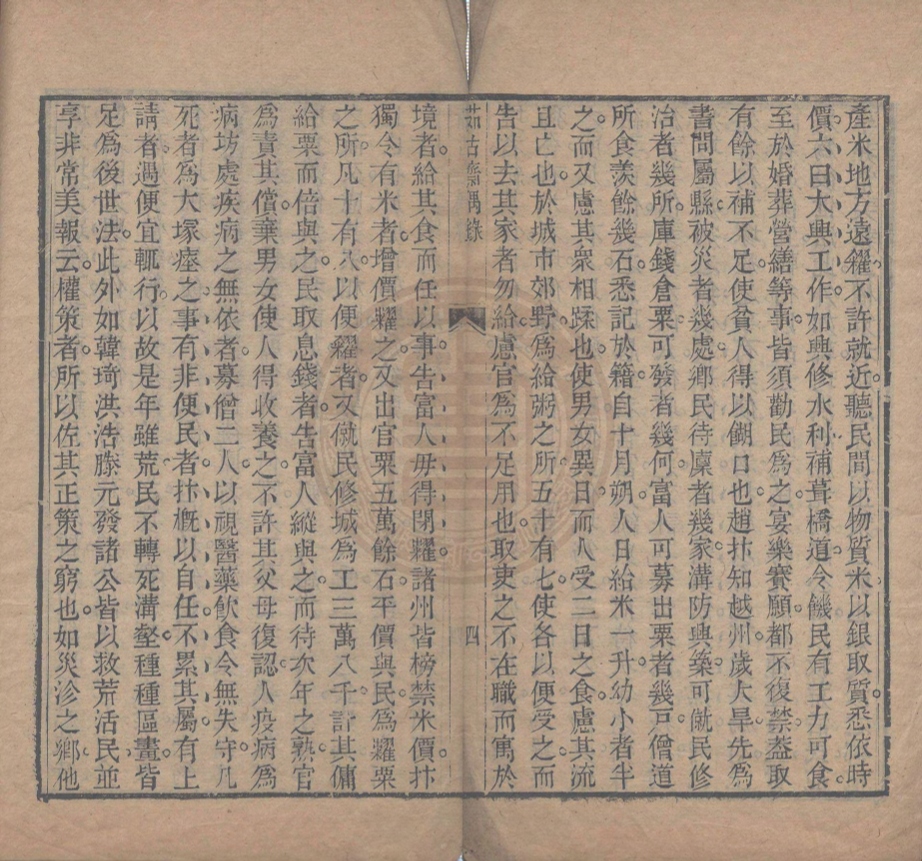 產米地方遠糴。不許就近。聽民間以物質米。以銀取質。悉依時
價。六曰大興工作。如興修水利。補葺橋道。令饑民有工力可食。
至於婚葬營繕等事。皆須勸民爲之。宴樂賽願。都不復禁。葢取
有餘以補不足。使貧人得以餬口也。趙抃知越州。歲大旱。先爲
書問屬縣。被災者幾處。鄉民待廩者幾家。溝防興築可僦民修
治者幾所。庫錢倉粟可發者幾何。富人可募出粟者幾戸。僧道
所食羨餘幾石。悉記於籍。自十月朔。人日給米一升。幼小者半
之。而又慮其衆相蹂也。使男女異日。而人受二日之食。慮其流
且亡也。於城市郊野。爲給粥之所五十有七。使各以便受之。而
告以去其家者勿給。慮官爲不足用也。取吏之不在職而寓於
茹古齋偶錄
四
境者。給其食而任以事。告富人毋得閉糴。諸州皆榜禁米價。抃
獨令有米者。增價糶之。又出官粟五萬餘石。平價與民。爲糶粟
之所。凡十有八。以便糴者。又僦民修城。爲工三萬八千。計其傭
給粟而倍與之。民取息錢者。告富人縱與之。而待次年之熟。官
爲責其償。棄男女使人得收養之。不許其父母復認。人疫病。爲
病坊。處疾病之無依者。募僧二人。以視醫藥飲食。令無失守。凡
死者。爲大塚瘞之。事有非便民者。抃概以自任。不累其屬。有上
請者。遇便宜輒行。以故是年雖荒。民不轉死溝壑。種種區畫。皆
足爲後世法。此外如韓琦洪浩滕元發諸公。皆以救荒活民。並
享非常美報云。權策者。所以佐其正策之窮也。如災沴之鄉。他